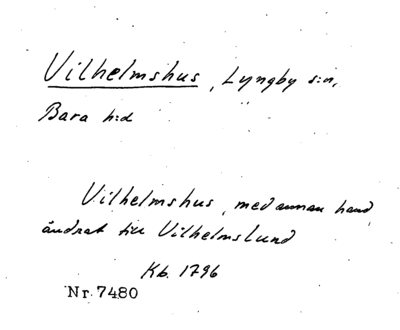 Vilhelmshus, Lyngby s:n,
Bara h:d
Vilhelmshus, med annan hand
ändrat till Vilhelmslund
Kb. 1796
Nr. 7480